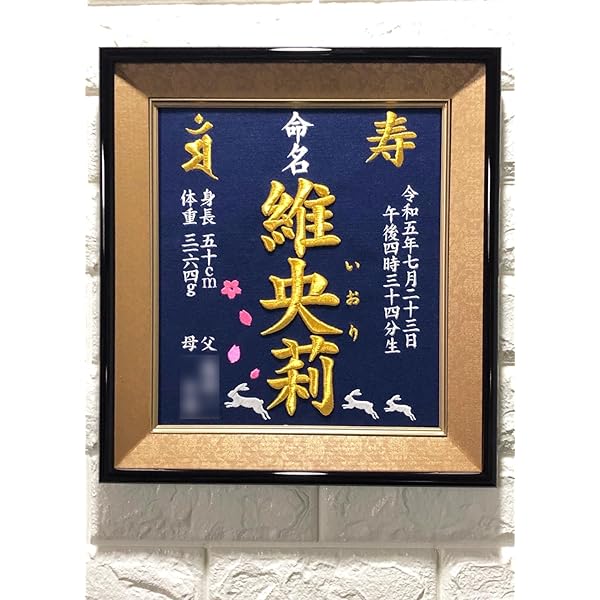 寿
令和五年七月二十三日
午後四時三十四分生
命名
維央莉
いおり
身長 五十cm
体重 三一六四g
父
母